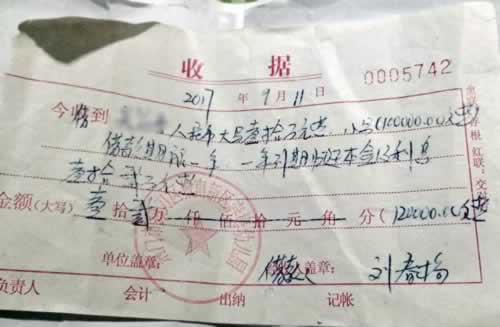 收据
0005742
2017 年 9 月 11 日
今借到 人民币大写壹拾万元整 小写(100000.00元整)
借款期限一年,一年到期归还本金及利息
壹拾贰万元整
金额(大写) 壹拾贰万仟佰拾元角分(120000.00元整)
单位盖章: 借款人盖章: 刘春扬
负责人 会计 出纳 记帐
根 红联:交